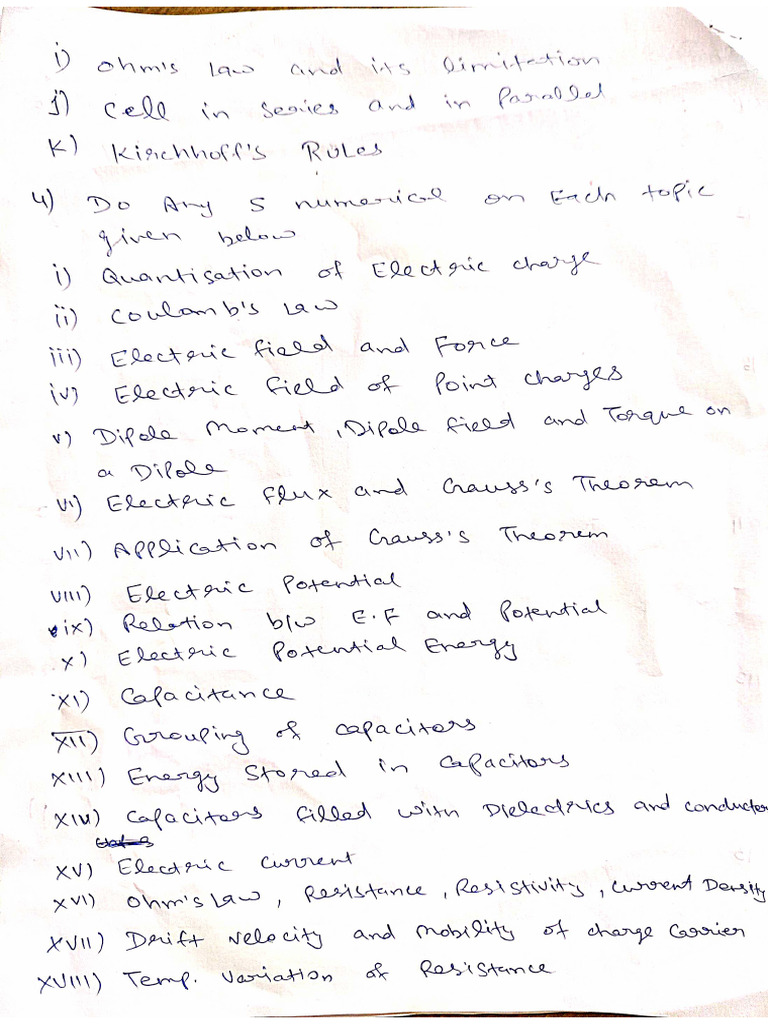 i) Ohm's law and its limitation
j) Cell in series and in Parallel
K) Kirchhoff's Rules
4) Do Any 5 numerical on Each topic
given below
i) Quantisation of Electric charge
ii) Coulamb's Law
iii) Electric field and Force
iv) Electric field of Point charges
v) Dipole Moment, Dipole field and Torque on
a Dipole
vi) Electric flux and Gauss's Theorem
vii) Application of Gauss's Theorem
viii) Electric Potential
ix) Relation b/w E.F and Potential
x) Electric Potential Energy
xi) Capacitance
xii) Grouping of capacitors
xiii) Energy stored in capacitors
xiv) Capacitors filled with Dielectrics and conductor
xv) Electric current
xvi) Ohm's Law, Resistance, Resistivity, Current Density
xvii) Drift velocity and mobility of charge carrier
xviii) Temp. variation of Resistance